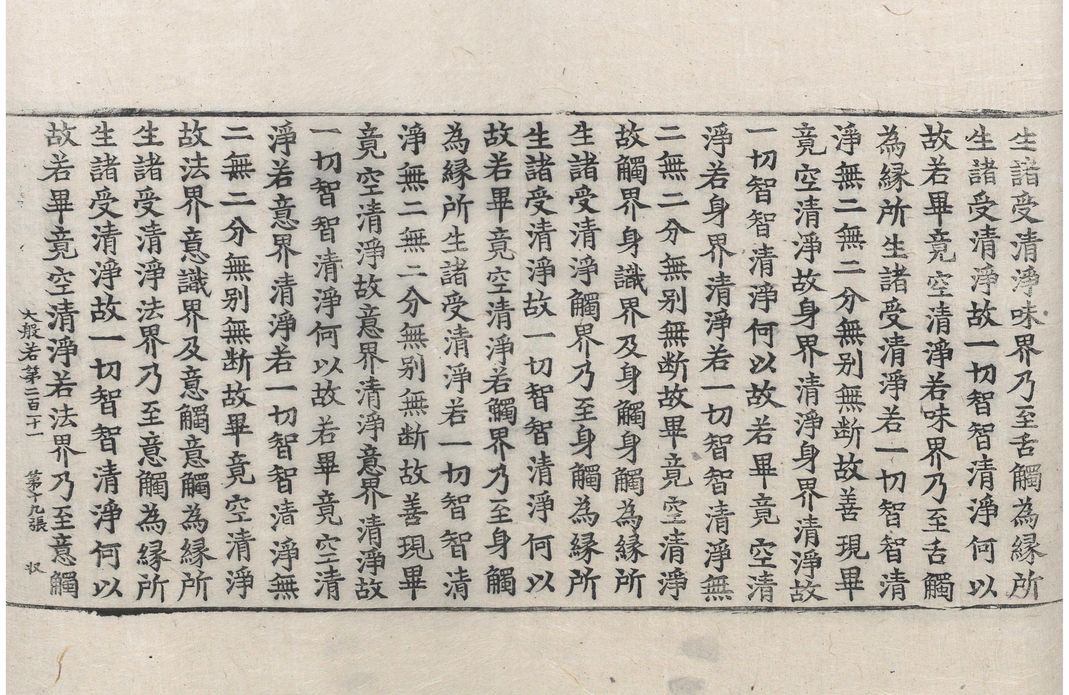 生諸受清淨味界乃至舌觸為縁所
生諸受清淨故一切智智清淨何以
故若畢竟空清淨若味界乃至舌觸
為縁所生諸受清淨若一切智智清
淨無二無二分無别無断故善現畢
竟空清淨故身界清淨身界清淨故
一切智智清淨何以故若畢竟空清
淨若身界清淨若一切智智清淨無
二無二分無别無断故畢竟空清淨
故觸界身識界及身觸身觸為縁所
生諸受清淨觸界乃至身觸為縁所
生諸受清淨故一切智智清淨何以
故若畢竟空清淨若觸界乃至身觸
為縁所生諸受清淨若一切智智清
淨無二無二分無别無断故善現畢
竟空清淨故意界清淨意界清淨故
一切智智清淨何以故若畢竟空清
淨若意界清淨若一切智智清淨無
二無二分無别無断故畢竟空清淨
故法界意識界及意觸意觸為縁所
生諸受清淨法界乃至意觸為縁所
生諸受清淨故一切智智清淨何以
故若畢竟空清淨若法界乃至意觸
大般若第二百十一 第十九張 収